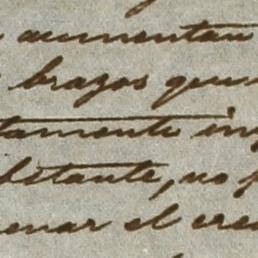 aumentan
brazos que
tamente in
bstante, no
enar el cre